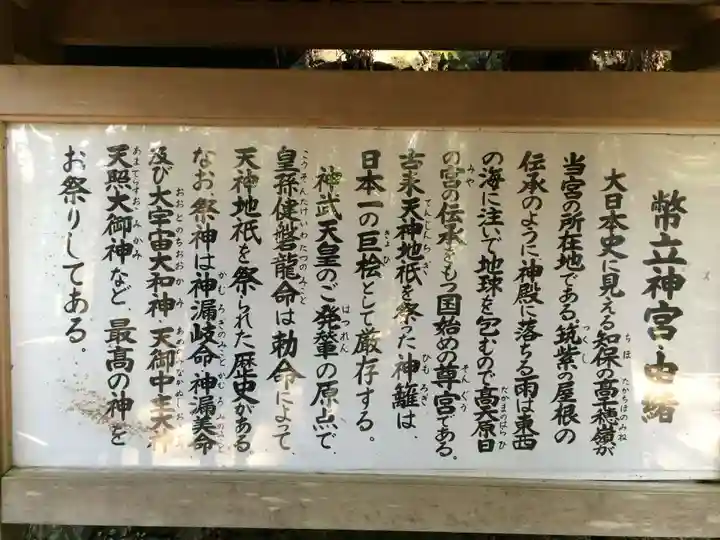 幣立神宮・由緒
大日本史に見える知保の高穂嶺が
当宮の所在地である。筑紫の屋根の
伝承のように神殿に落ちる雨は東西
の海に注いで地球を包むので高天原日
の宮の伝承をもつ国始めの尊宮である。
古来天神地祇を祭った神籬は、
日本一の巨桧として厳存する。
神武天皇のご発輦の原点で、
皇孫健磐龍命は勅命によって、
天神地祇を祭られた歴史がある
なお、祭神は神漏岐命、神漏美命
及び大宇宙大和神、天御中主大神
天照大御神など、最高の神を
お祭りしてある。